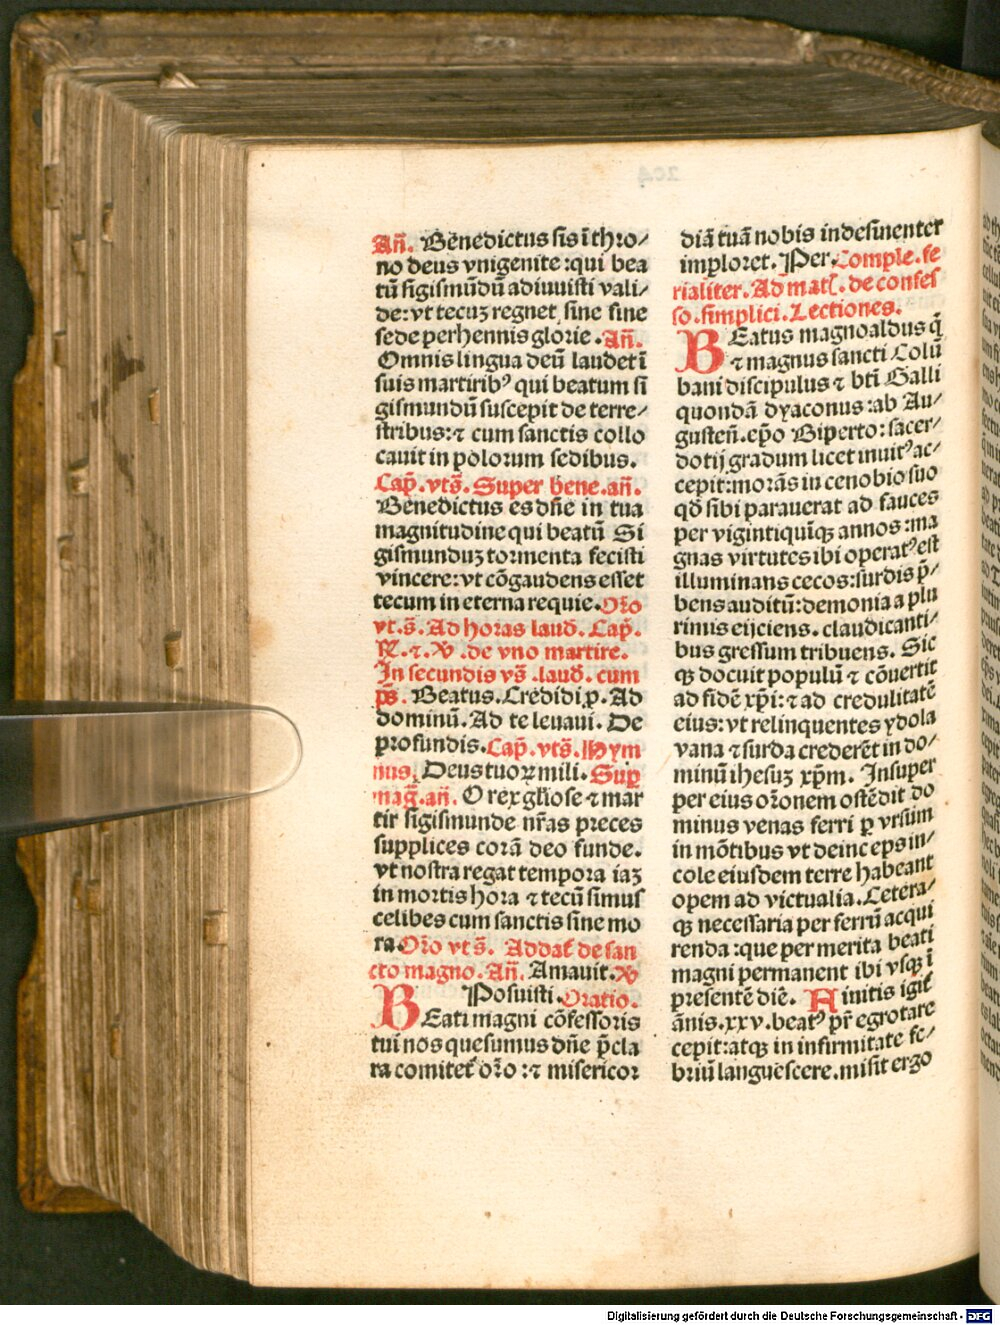 Añ. Benedictus sis ī thro/
no deus vnigenite:qui bea
tū sigismūdū adiuuisti vali/
de:vt tecuꝫ regnet sine fine
sede perhennis glorie.Añ.
Omnis lingua deū laudet ī
suis martiribꝰ qui beatum si
gismundū suscepit de terre/
stribus:⁊ cum sanctis collo
cauit in polorum sedibus.
Cap̄.vts̄.Super bene.añ.
Benedictus es dn̄e in tua
magnitudine qui beatū Si
gismunduꝫ tormenta fecisti
vincere:vt cōgaudens esset
tecum in eterna requie.Or̄o
vt.s̄.Ad horas laud̄.Cap̄.
R̄.⁊.V̄.de vno martire.
In secundis vs̄.laud̄.cum
ps̄. Beatus.Credidi ꝓ. Ad
dominū.Ad te leuaui. De
profundis.Cap̄.vts̄.Hym
nus. Deus tuoꝝ mili. Suꝑ
mag̃.añ. O rex gl̄iose ⁊ mar
tir sigismunde nr̄as preces
supplices corā deo funde.
vt nostra regat tempora iaꝫ
in mortis hora ⁊ tecū simus
celibes cum sanctis sine mo
ra.Or̄o vts̄. Ad dat̄ de san
cto magno.Añ.Amauit.V̄
Posuisti.Oratio.
BEati magni cōfessoris
tui nos quesumus dn̄e p̄cla
ra comitet̄ or̄o:⁊ misericor
diā tuā nobis indesinenter
imploret.Per.Comple.fe
rialiter.Ad mat̄.de confes
so.simplici.Lectiones.
BEatus magnoaldus q̄
⁊ magnus sancti Colū
bani discipulus ⁊ bt̄i Galli
quondā dyaconus:ab Au/
gusten̄.ep̄o Biperto:sacer/
dotij gradum licet inuitꝰ ac/
cepit:morās in cenobio suo
qd̄ sibi parauerat ad fauces
per vigintiquīqꝫ annos:ma
gnas virtutes ibi operatꝰ est
illuminans cecos:surdis p̄/
bens auditū:demonia a plu
rimis eijciens.claudicanti/
bus gressum tribuens. Sic
qꝫ docuit populū ⁊ cōuertit
ad fidē xp̄i:⁊ ad credulitatē
eius:vt relinquentes ydola
vana ⁊ surda crederēt in do/
minū ihesuꝫ xp̄m. Insuper
per eius or̄onem ostēdit do
minus venas ferri ꝑ vrsum
in mōtibus vt deinceps in/
cole eiusdem terre habeant
opem ad victualia.Cetera/
qꝫ necessaria per ferrū acqui
renda:que per merita beati
magni permanent ibi vsqꝫ ī
presentē diē. Ainitis igit̄
ānis.xxv.beatꝰ pr̄ egrotare
cepit:atqꝫ in infirmitate fe/
briū languescere.misit ergo
Digitalisierung gefördert durch die Deutsche Forschungsgemeinschaft - DFG